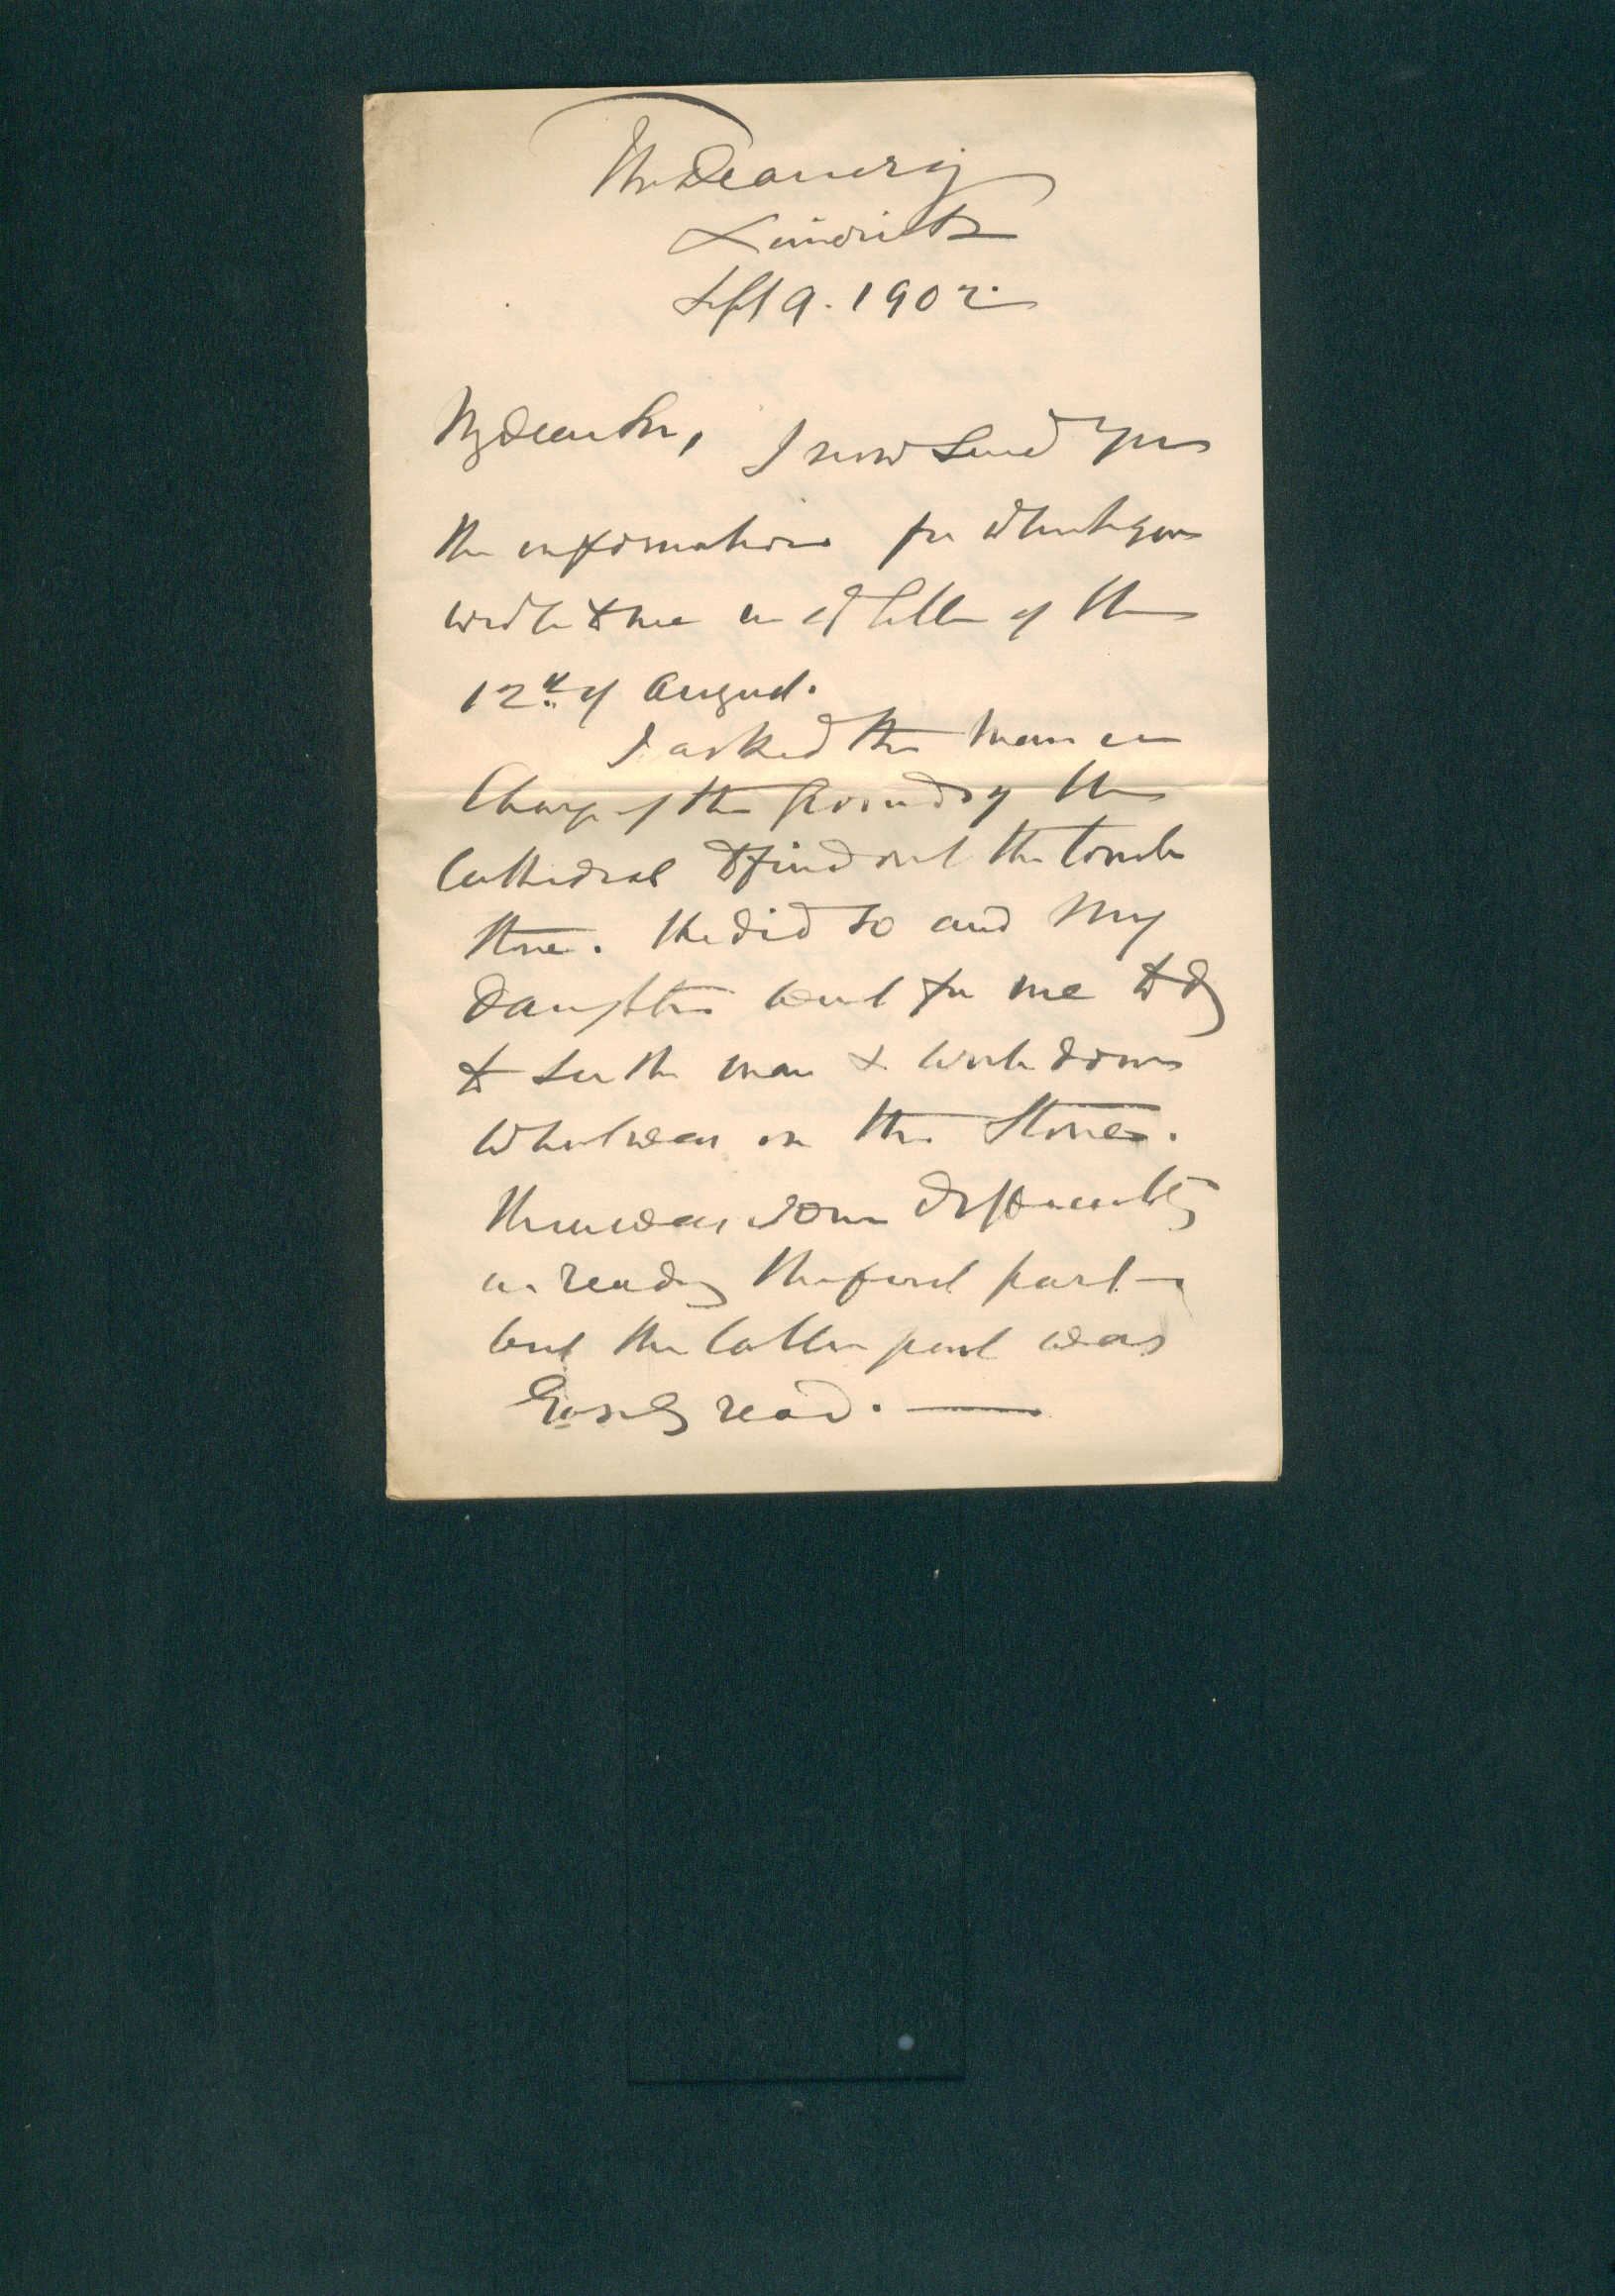 The Deanery
Limerick
Sept 9. 1902.
My dear Sir, I now send you
the information for which you
wrote to me in letter of the
12th of August.
I asked the man in
Charge of the Grounds of the
Cathedral to find out the tomb
stone. He did so and my
daughter went for me to day
to see the man & write down
what was on the Stone.
There was some difficulty
in reading the first part
but the latter part was
Easily read. —